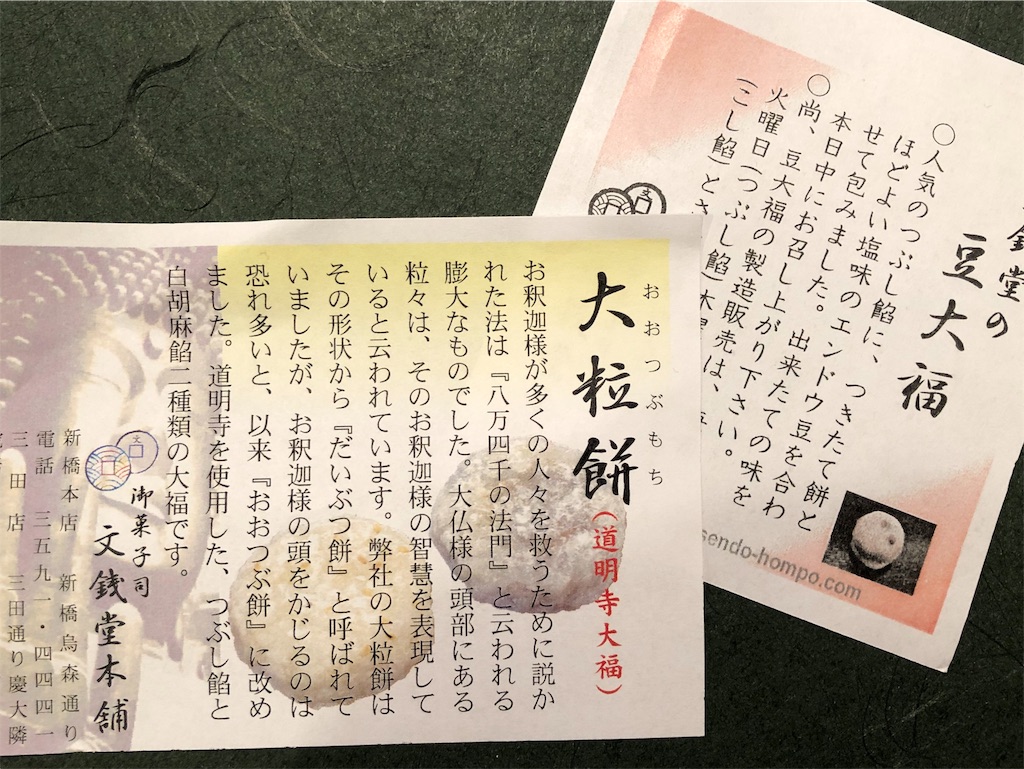 おおつぶもち
大粒餅(道明寺大福)
お釈迦様が多くの人々を救うために説か
れた法は『八万四千の法門』と云われる
膨大なものでした。大仏様の頭部にある
粒々は、そのお釈迦様の智慧を表現して
いると云われています。弊社の大粒餅は
その形状から『だいぶつ餅』と呼ばれて
いましたが、お釈迦様の頭をかじるのは
恐れ多いと、以来『おおつぶ餅』に改め
ました。道明寺を使用した、つぶし餡と
白胡麻餡二種類の大福です。
御菓子司
文銭堂本舗
新橋本店 新橋烏森通り
電話 三五九一・四四四一
三田店 三田通り慶大隣
銭堂の
豆大福
○人気のつぶし餡に、つきたて餅と
ほどよい塩味のエンドウ豆を合わ
せて包みました。出来たての味を
本日中にお召し上がり下さい。
○尚、豆大福の製造販売は、
火曜日(つぶし餡)木
(こし餡)とさ
sendo-hompo.com